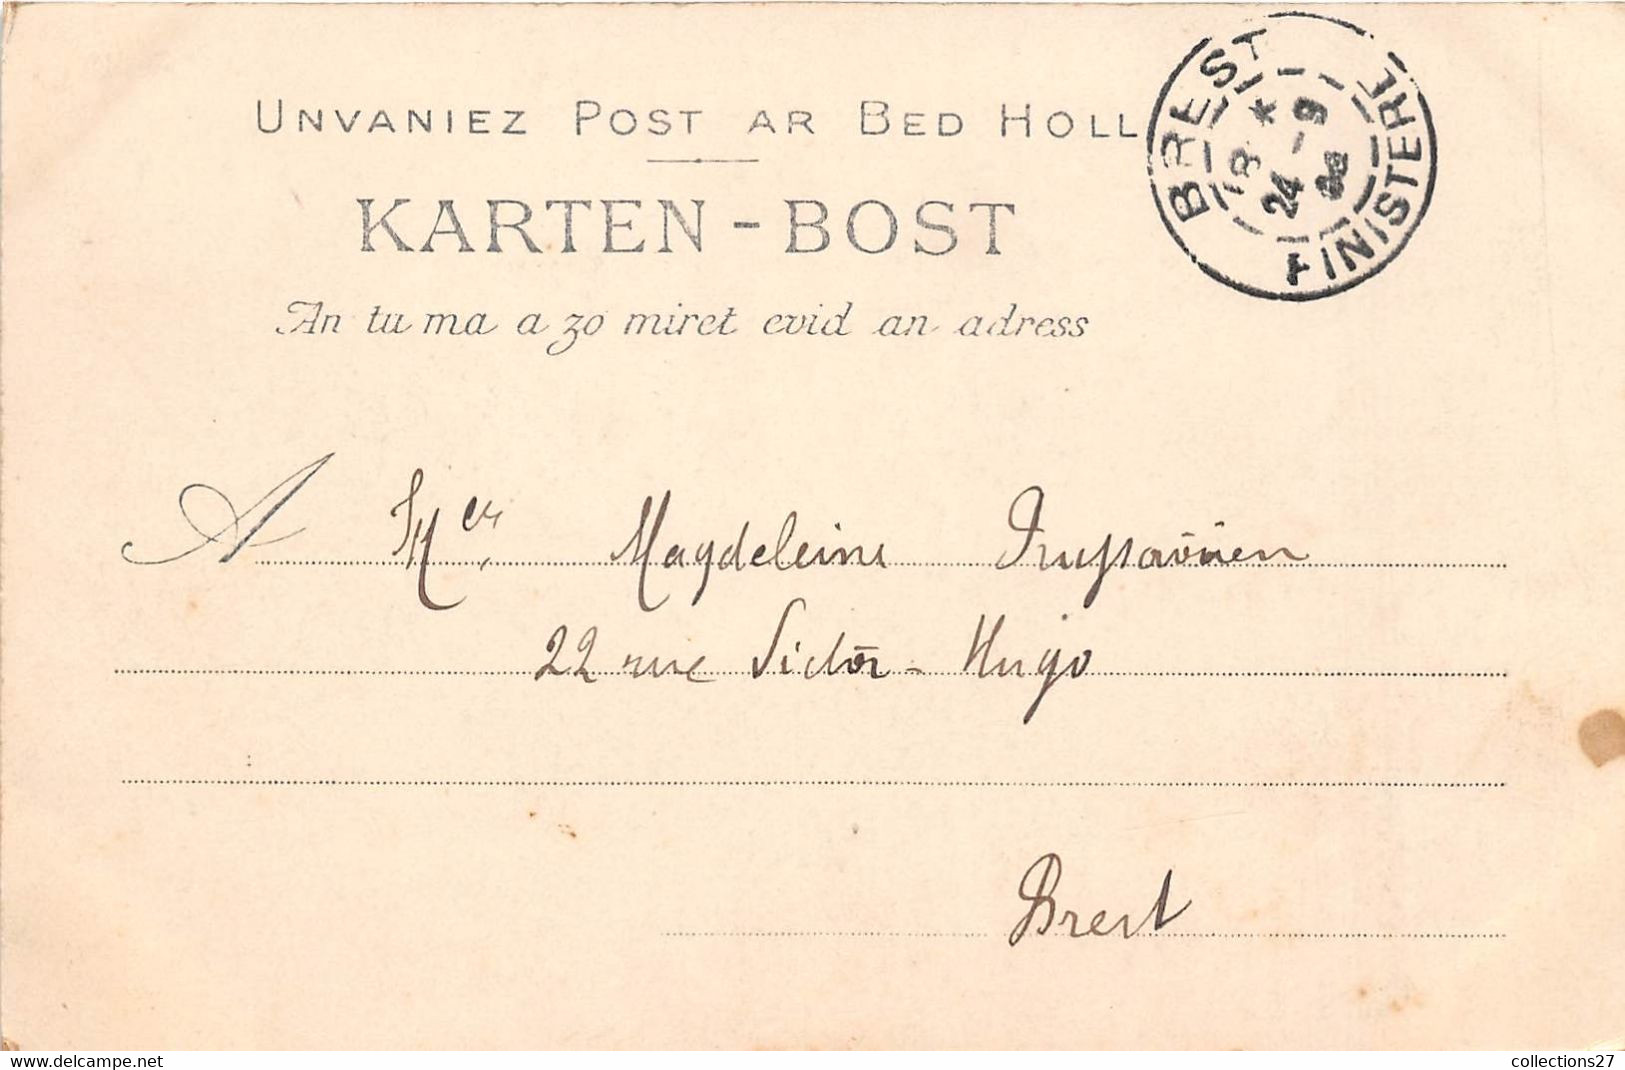 UNVANIEZ POST AR BED HOLL
KARTEN-BOST
An tu ma a zo miret evid an adress
BREST
FINISTERE
24 -9
A Magdeleine
22 rue Victor-Hugo
Brest
delcampe.net
collections27